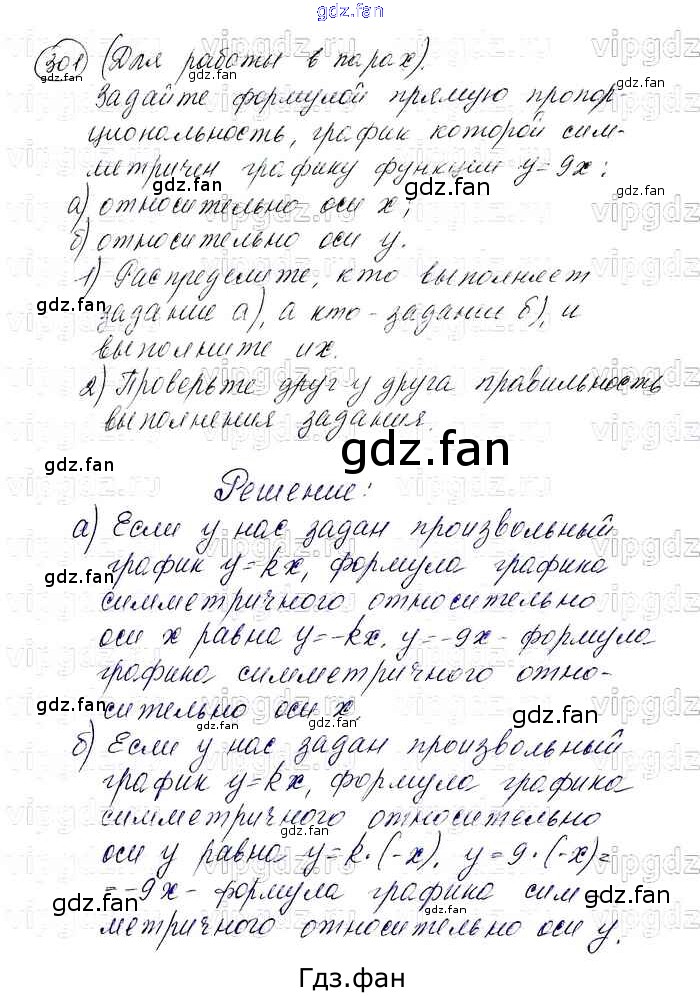 gdz.fan
301 (Для работы в парах).
Задайте формулой прямую пропор-
циональность, график которой сим-
метричен графику функции y=9x:
gdz.fan
gdz.fan
а) относительно оси x;
б) относительно оси y.
1) Распределите, кто выполняет
gdz.fan
gdz.fan
задание а), а кто - задание б), и
выполните их.
2) Проверьте друг у друга правильность
выполнения задания.
gdz.fan
gdz.fan
Решение:
а) Если у нас задан произвольный
график y=kx, формула графика
gdz.fan
gdz.fan
симметричного относительно
оси x равна y=-kx. y=-9x - формула
графика симметричного отно-
gdz.fan
сительно оси x
gdz.fan
б) Если у нас задан произвольный
график y=kx, формула графика
gdz.fan
симметричного относительно
gdz.fan
оси y равна y=k·(-x). y=9·(-x)=
gdz.fan
=-9x - формула графика сим-
gdz.fan
метричного относительно оси y.
Гдз.фан